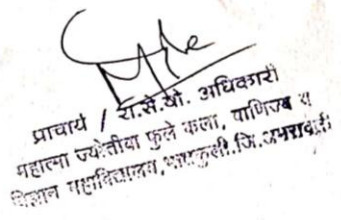 प्राचार्य / रा.से.यो. अधिकारी
महात्मा ज्योतीबा फुले कला, वाणिज्य व
विज्ञान महाविद्यालय, भातकुली.जि.अमरावती